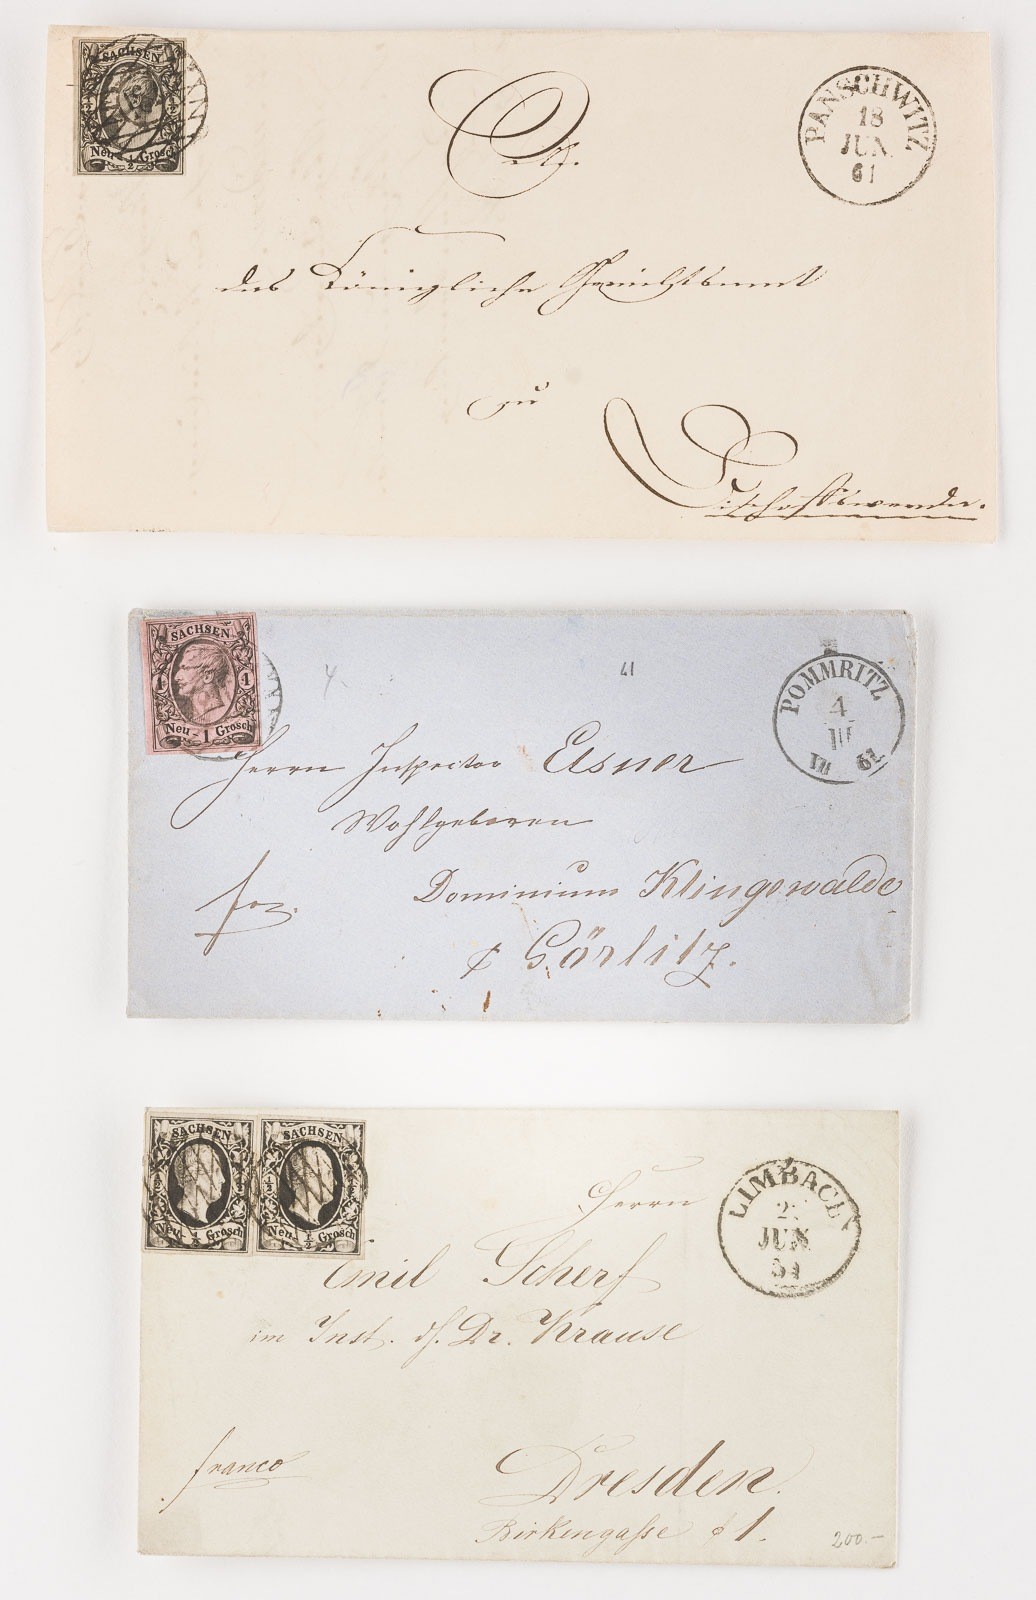 SACHSEN
½ ½
Neu- ½ Grosch
PANSCHWITZ
18
JUN.
61
An
das Königliche Gerichtsamt
zu
Bischofswerda.
SACHSEN
1 1
Neu- 1 Grosch
41
POMMRITZ
4
III
61
Herrn Inspector Elsner
Wohlgeboren
Dominium Klingswalde
Görlitz.
SACHSEN
½ ½
Neu- ½ Grosch
SACHSEN
½ ½
Neu- ½ Grosch
LIMBACH
JUN
Herrn
Emil Scherf
im Inst. d. Dr. Krause
franco
Dresden.
Birkengasse 1.
200.-